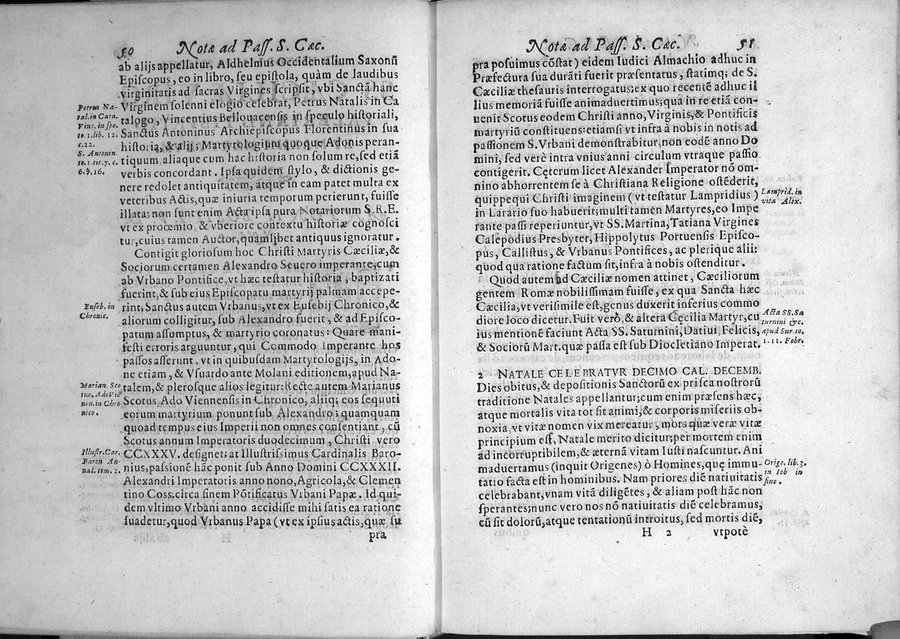 50 Notæ ad Paſſ. S. Cæc.
ab alijs appellatur, Aldhelmus Occidentalium Saxonū
Epiſcopus, eo in libro, ſeu epiſtola, quàm de laudibus
virginitatis ad ſacras Virgines ſcripſit, vbi Sanctā hanc
Virginem ſolenni elogio celebrat, Petrus Natalis in Ca
talogo, Vincentius Bellouacenſis in ſpeculo hiſtoriali,
Sanctus Antoninus Archiepiſcopus Florentinus in ſua
hiſtoria, & alij; Martyrologium quoque Adonis peran-
tiquum aliaque cum hac hiſtoria non ſolum re, ſed etiā
verbis concordant. Ipſa quidem ſtylo, & dictionis ge-
nere redolet antiquitatem, atque in eam patet multa ex
veteribus Actis, quæ iniuria temporum perierunt, fuiſſe
illata: non ſunt enim Acta ipſa pura Notariorum S.R.E.
vt ex procemio, & vberiore contextu hiſtoriæ cognoſci
tur, cuius tamen Auctor, quamlibet antiquus ignoratur.
Contigit glorioſum hoc Chriſti Martyris Cæciliæ, &
Sociorum certamen Alexandro Seuero imperante, cum
ab Vrbano Pontifice, vt hæc teſtatur hiſtoria, baptizati
fuerint, & ſub eius Epiſcopatu martyrij palmam accepe-
rint, Sanctus autem Vrbanus, vt ex Euſebij Chronico, &
aliorum colligitur, ſub Alexandro fuerit, & ad Epiſco-
patum aſſumptus, & martyrio coronatus: Quare mani-
feſti erroris arguuntur, qui Commodo Imperante hos
paſſos aſſerunt, vt in quibuſdam Martyrologijs, in Ado-
ne etiam, & Vſuardo ante Molani editionem, apud Na-
talem, & pleroſque alios legitur: Recte autem Marianus
Scotus, Ado Viennenſis in Chronico, alijq; eos ſequuti
eorum martyrium ponunt ſub Alexandro; quamquam
quoad tempus eius Imperij non omnes conſentiant, cū
Scotus annum Imperatoris duodecimum, Chriſti vero
CCXXXV. deſignet: at Illuſtriſsimus Cardinalis Baro-
nius, paſsionē hāc ponit ſub Anno Domini CCXXXII.
Alexandri Imperatoris anno nono, Agricola, & Clemen
tino Coss. circa finem Pōtificatus Vrbani Papæ. Id qui-
dem vltimo Vrbani anno accidiſſe mihi ſatis ea ratione
ſuadetur, quod Vrbanus Papa (vt ex ipſius actis, quæ ſu
pra
Petrus Na-
tal. in Cata.
Vinc. in ſpe.
10. 1. lib. 12.
c. 22.
S. Antonin.
10. 1. tit. 7. c.
6. §. 16.
Euſeb. in
Chronic.
Marian. Sco
tus, Ado Vie
nen. in Chro
nico.
Illuſtr. Car.
Baron An-
nal. tom. 2.
Notæ ad Paſſ. S. Cæc. 51
pra poſuimus cōſtat) eidem Iudici Almachio adhuc in
Præfectura ſua durāti fuerit præſentatus, ſtatimq; de S.
Cæciliæ theſauris interrogatus: ex quo recentē adhuc il
lius memoriā fuiſſe animaduertimus; qua in re etiā con-
uenit Scotus eodem Chriſti anno, Virginis, & Pontificis
martyriū conſtituens: etiamſi vt infra à nobis in notis ad
paſſionem S. Vrbani demonſtrabitur, non eodē anno Do
mini, ſed verè intra vnius anni circulum vtraque paſſio
contigerit. Cęterum licet Alexander Imperator nō om-
nino abhorrentem ſe à Chriſtiana Religione oſtēderit,
quippequi Chriſti imaginem (vt teſtatur Lampridius)
in Larario ſuo habuerit; multi tamen Martyres, eo Impe
rante paſſi reperiuntur, vt SS. Martina, Tatiana Virgines
Calepodius Presbyter, Hippolytus Portuenſis Epiſco-
pus, Calliſtus, & Vrbanus Pontifices, ac plerique alii:
quod qua ratione factum ſit, infra à nobis oſtenditur.
Quod autem ad Cæciliæ nomen attinet, Cæciliorum
gentem Romæ nobiliſſimam fuiſſe, ex qua Sancta hæc
Cæcilia, vt veriſimile eſt, genus duxerit inferius commo
diore loco dicetur. Fuit verò, & altera Cęcilia Martyr, cu
ius mentionē faciunt Acta SS. Saturnini, Datiui, Felicis,
& Sociorū Mart. quæ paſſa eſt ſub Diocletiano Imperat.
2 NATALE CELEBRATVR DECIMO CAL. DECEMB.
Dies obitus, & depoſitionis Sanctorū ex priſca noſtrorū
traditione Natales appellantur; cum enim præſens hæc,
atque mortalis vita tot ſit animi, & corporis miſeriis ob-
noxia vt vitæ nomen vix mereatur, mors quæ veræ vitæ
principium eſt, Natale merito dicitur; per mortem enim
ad incorruptibilem, & æternā vitam Iuſti naſcuntur. Ani
maduertamus (inquit Origenes) ò Homines, quę immu-
tatio facta eſt in hominibus. Nam priores diē natiuitatis
celebrabant, vnam vitā diligētes, & aliam poſt hāc non
ſperantes; nunc vero nos nō natiuitatis diē celebramus,
cū ſit dolorū, atque tentationū introitus, ſed mortis diē,
H 2 vtpotè
Lamprid. in
vita Alex.
Acta SS. Sa
turnini &c.
apud Sur. to.
1. 11. Febr.
Orige. lib. 3.
in Iob in
fine.